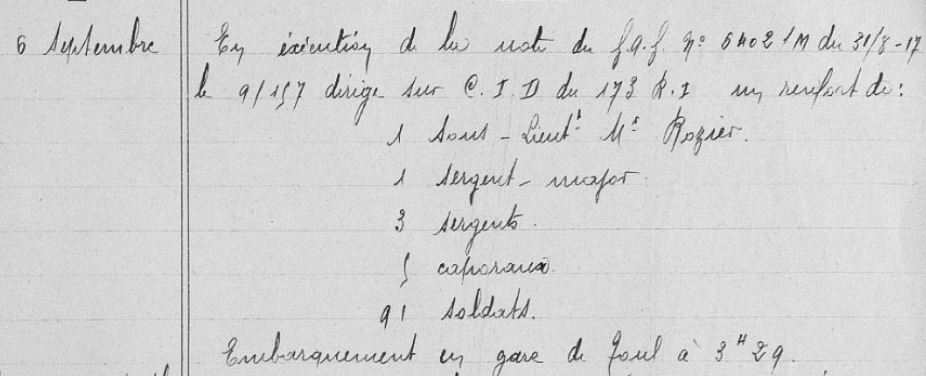 6 Septembre En éxécution de la note du G.Q.G. N° 6402 1M du 31/8-17
le 9/157 dirige sur C.I.D du 173 R.I un renfort de :
1 Sous-Lieutt Mr Rozier.
1 sergent-major
3 sergents.
5 caporaux.
91 soldats.
Embarquement en gare de Toul à 3H29.